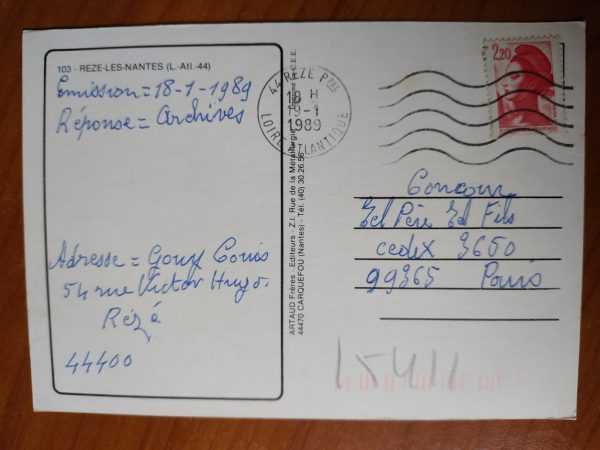 103 - REZE-LES-NANTES (L.-Atl.-44)
Emission = 18-1-1989
Réponse = Archives
Adresse = Gouy Louis
54 rue Victor Hugo.
Rézé
44400
ARTAUD Frères - Editeurs - Z.I. Rue de la Métallurgie
44470 CARQUEFOU (Nantes) - Tél. (40) 30.26.56
C.E.E.
44 REZE Pal
18 H
19-1
1989
LOIRE ATLANTIQUE
2,20
Concour
Tel Père Tel Fils
cedex 3650
99365 Paris
15411